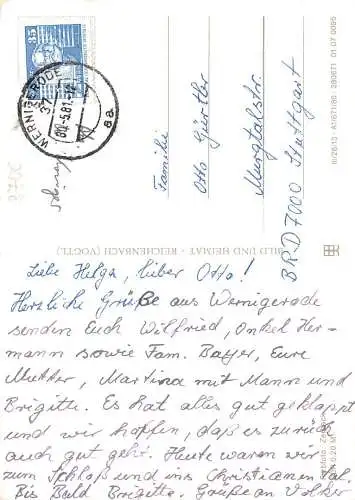 35
WERNIGERODE
37
-5.81-
aa
Familie
Otto Gürtler
Murgtalstr.
BRD 7000 Stuttgart
BILD UND HEIMAT · REICHENBACH (VOGTL.)
III/26/13 A1/871/80 280671 01 07 0095
Liebe Helga, lieber Otto!
Herzliche Grüße aus Wernigerode
senden Euch Wilfried, Onkel Her-
mann sowie Fam. Bayer, Eure
Mutter, Martina mit Mann und
Brigitte. Es hat alles gut geklappt
und wir hoffen, daß es zurück
auch gut geht. Heute waren wir
zum Schloß und ins Christianental.
Bis Bald Brigitte.